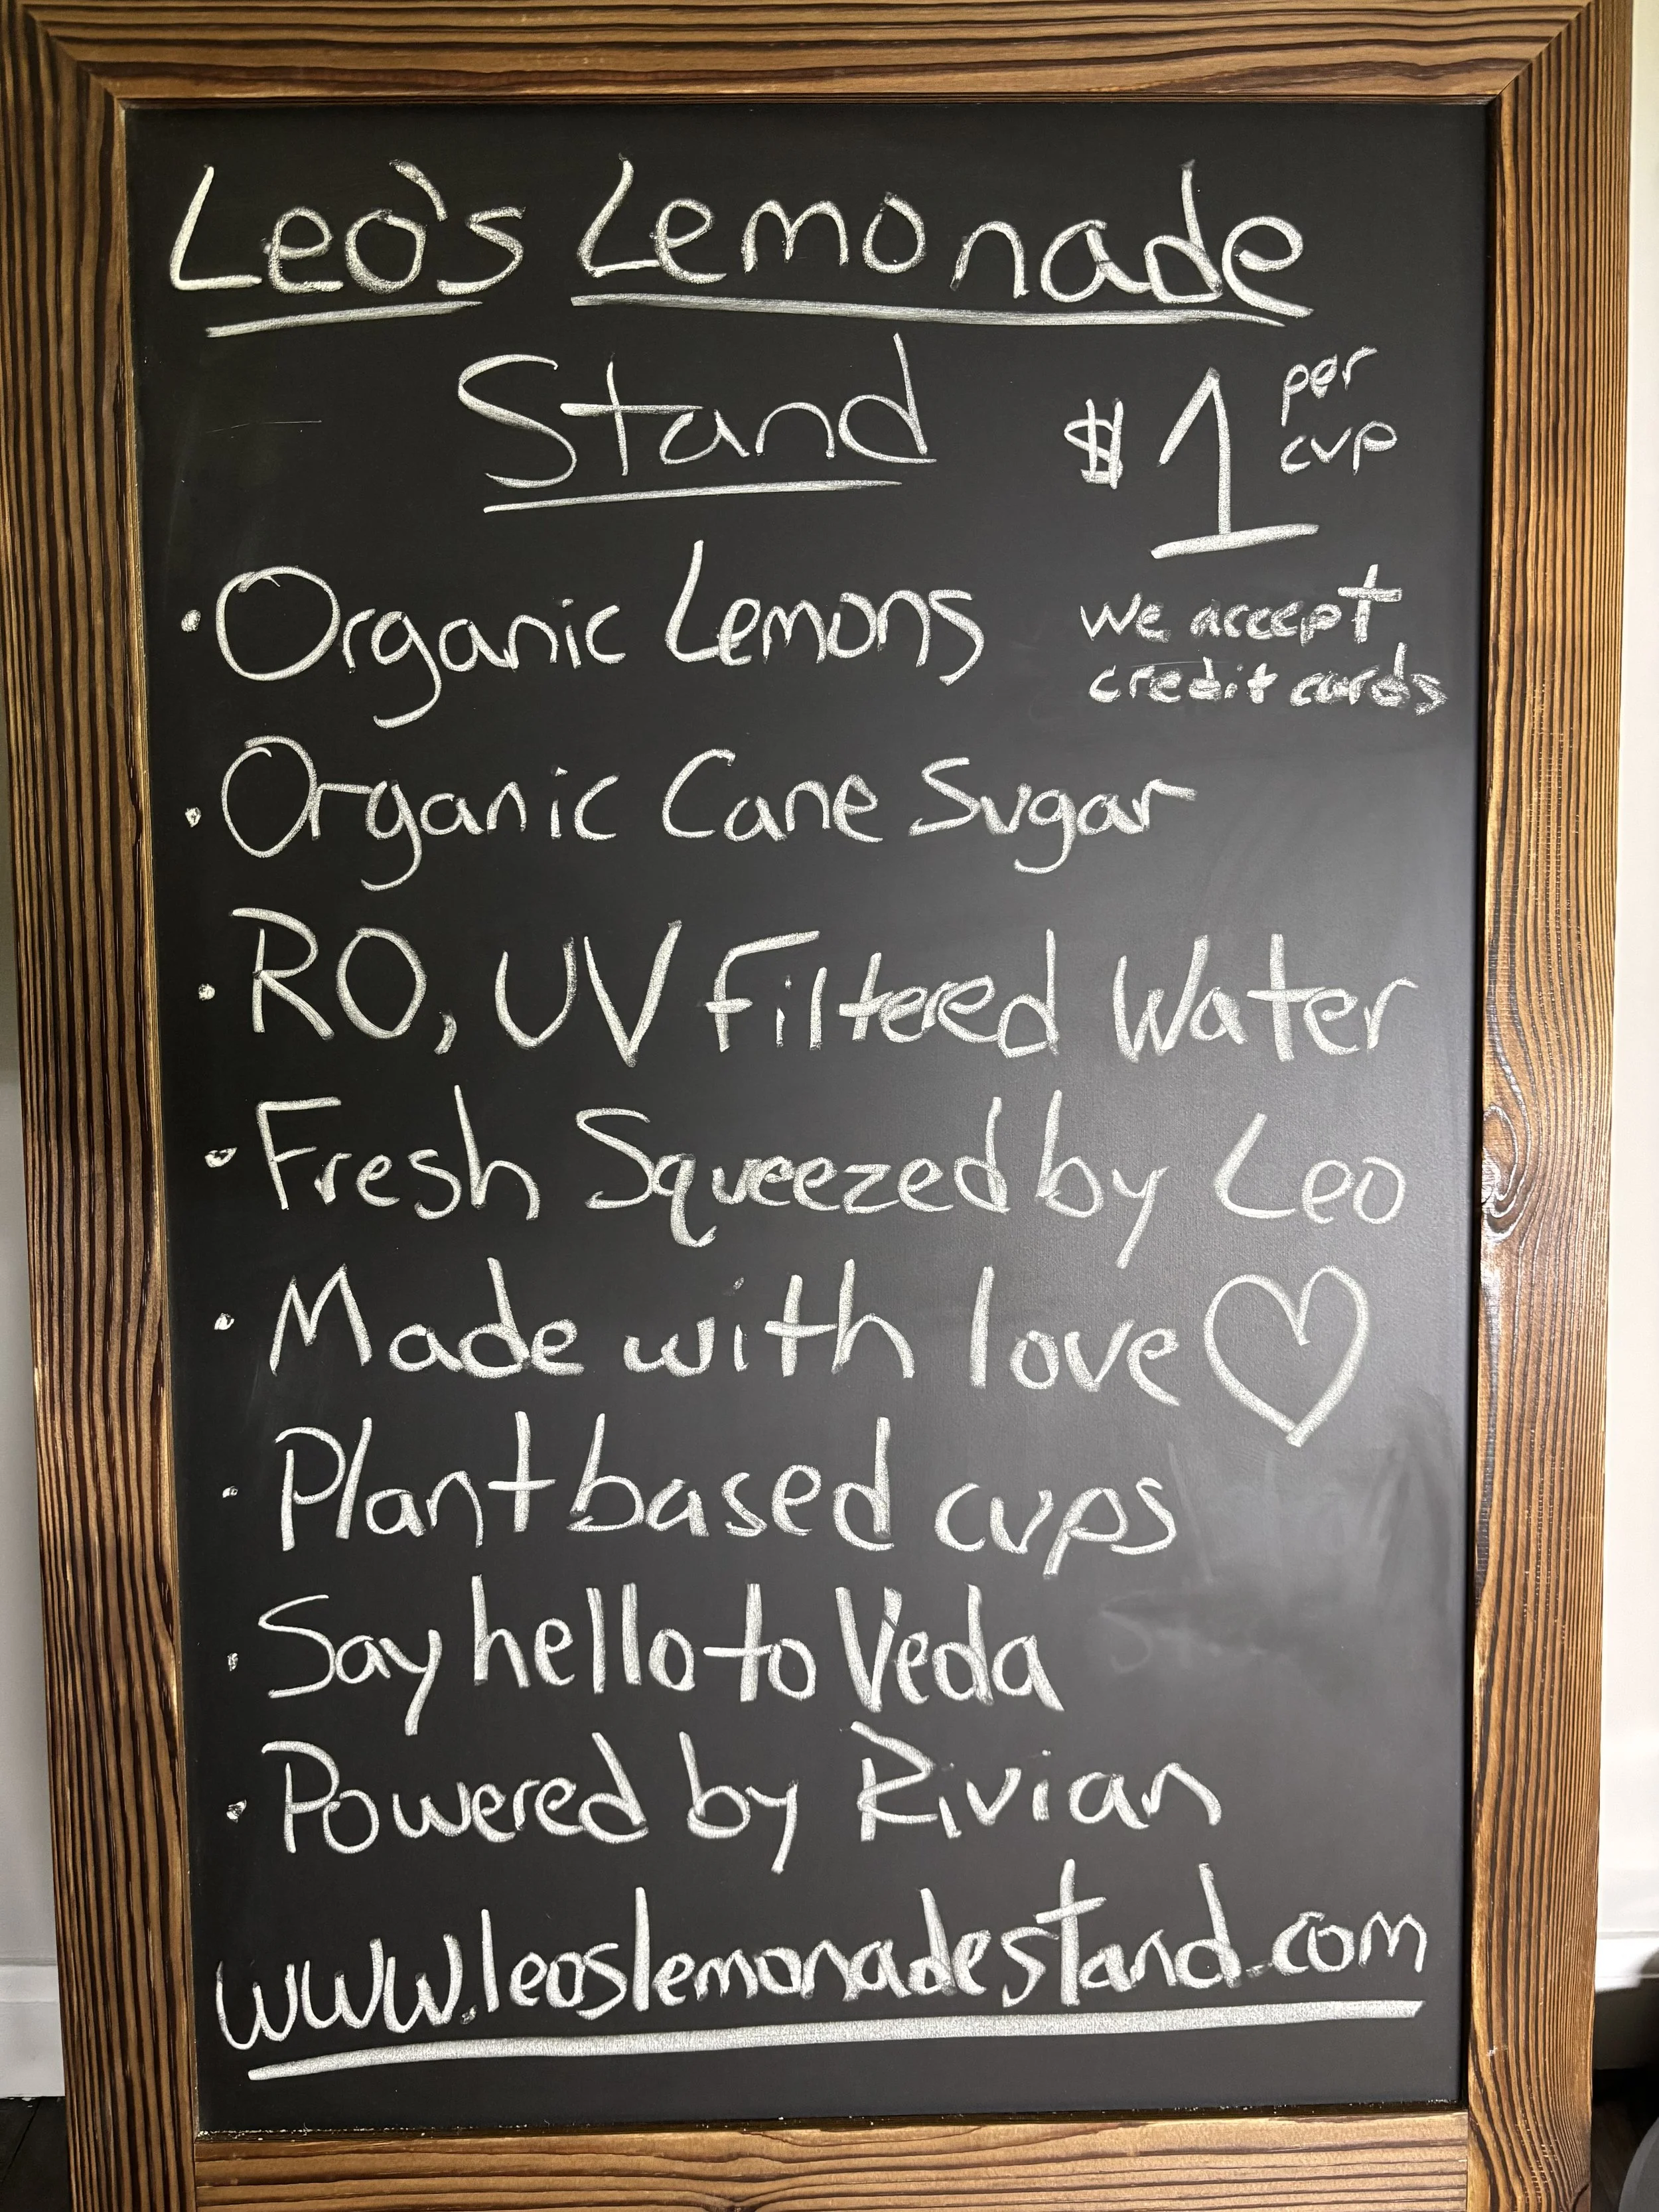 Leo's Lemonade
Stand
$1 per cup
• Organic Lemons
We accept
credit cards
• Organic Cane Sugar
• RO, UV Filtered Water
• Fresh Squeezed by Leo
• Made with love ♡
• Plant based cups
• Say hello to Veda
• Powered by Rivian
www.leoslemonadestand.com